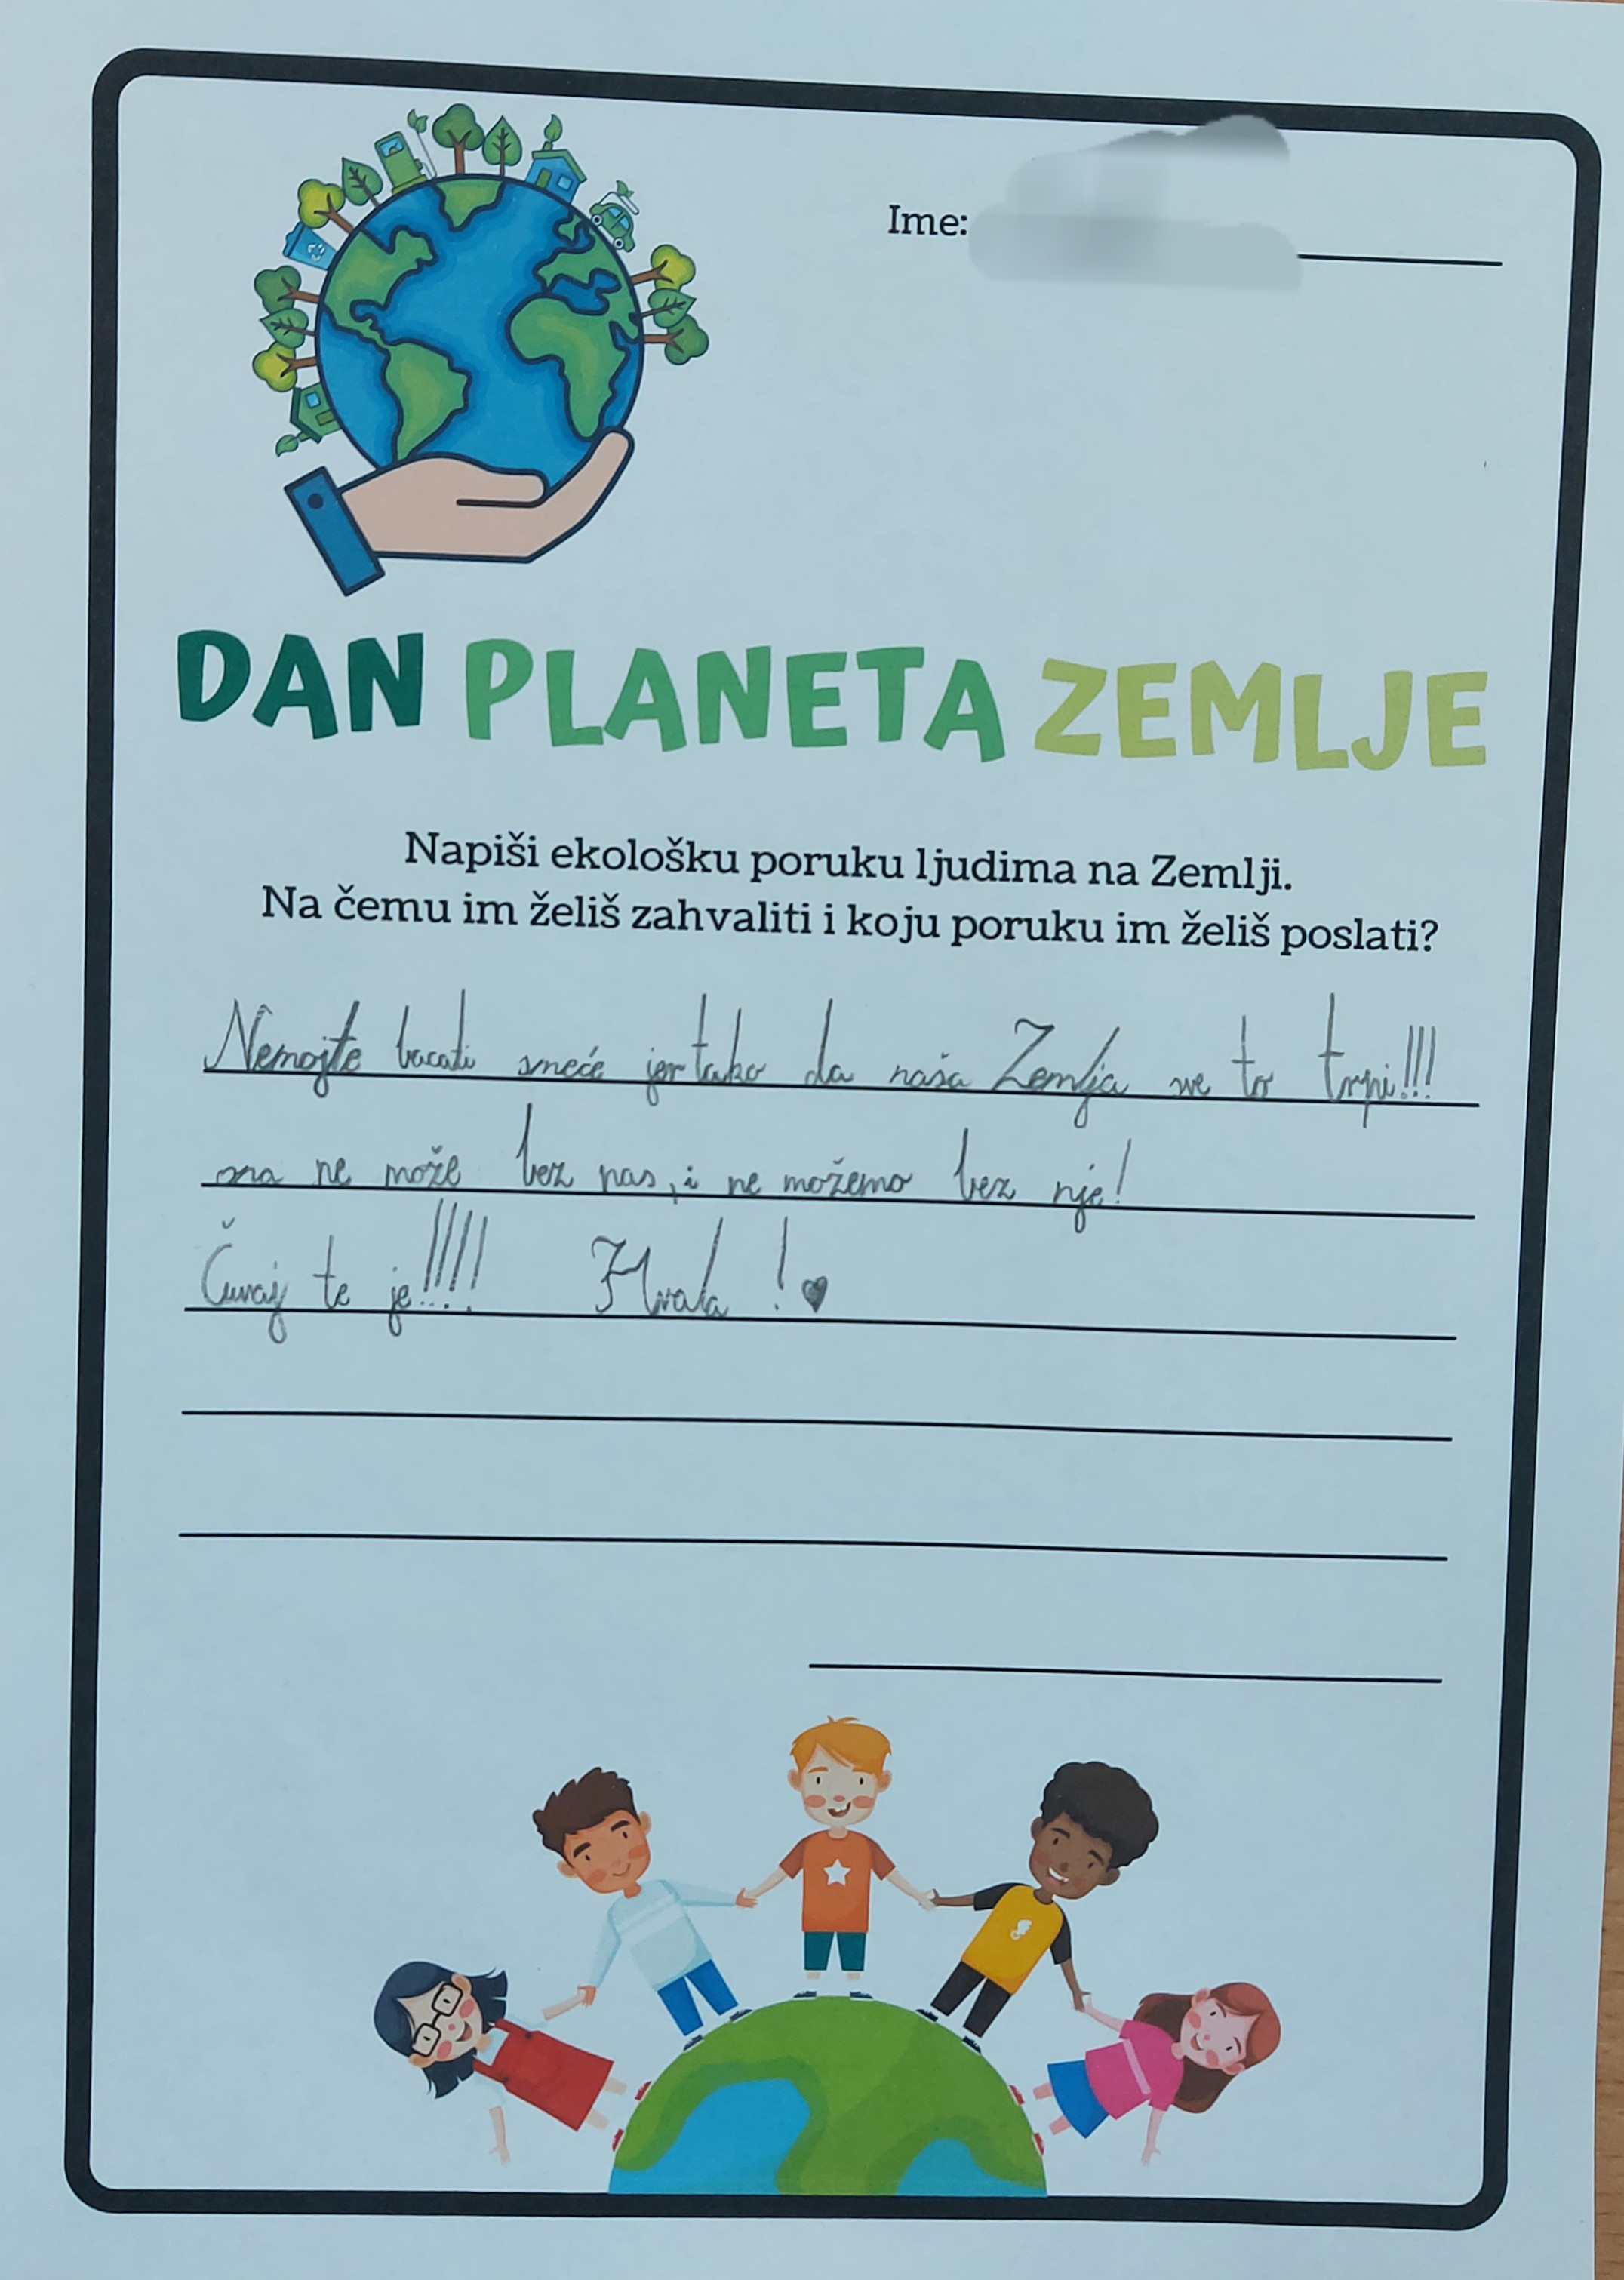 Ime:
DAN PLANETA ZEMLJE
Napiši ekološku poruku ljudima na Zemlji.
Na čemu im želiš zahvaliti i koju poruku im želiš poslati?
Nemojte bacati smeće jer tako da naša Zemlja sve to trpi!!!
ona ne može bez nas, i ne možemo bez nje!
Čuvaj te je!!!! Hvala !♥